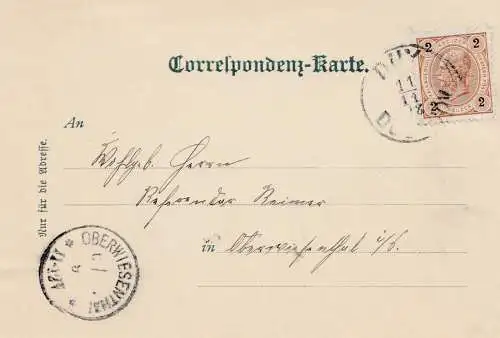 Correspondenz-Karte.
2 2
2 2
11
11
Nur für die Adresse.
An
Wohlgeb. Herrn
Referendar Reimer
in Oberwiesenthal i/S.
OBERWIESENTHAL